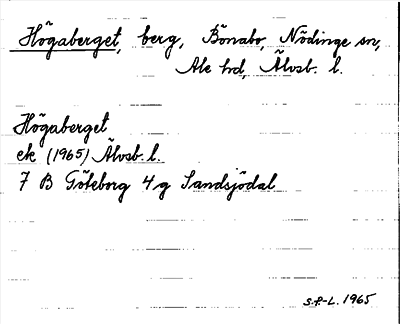 Högaberget, berg, Bönabo, Nödinge sn,
Ale hd, Älvsb. l.
Högaberget
ek (1965) Älvsb. l.
7 B Göteborg 4g Sandsjödal
S.P-L. 1965